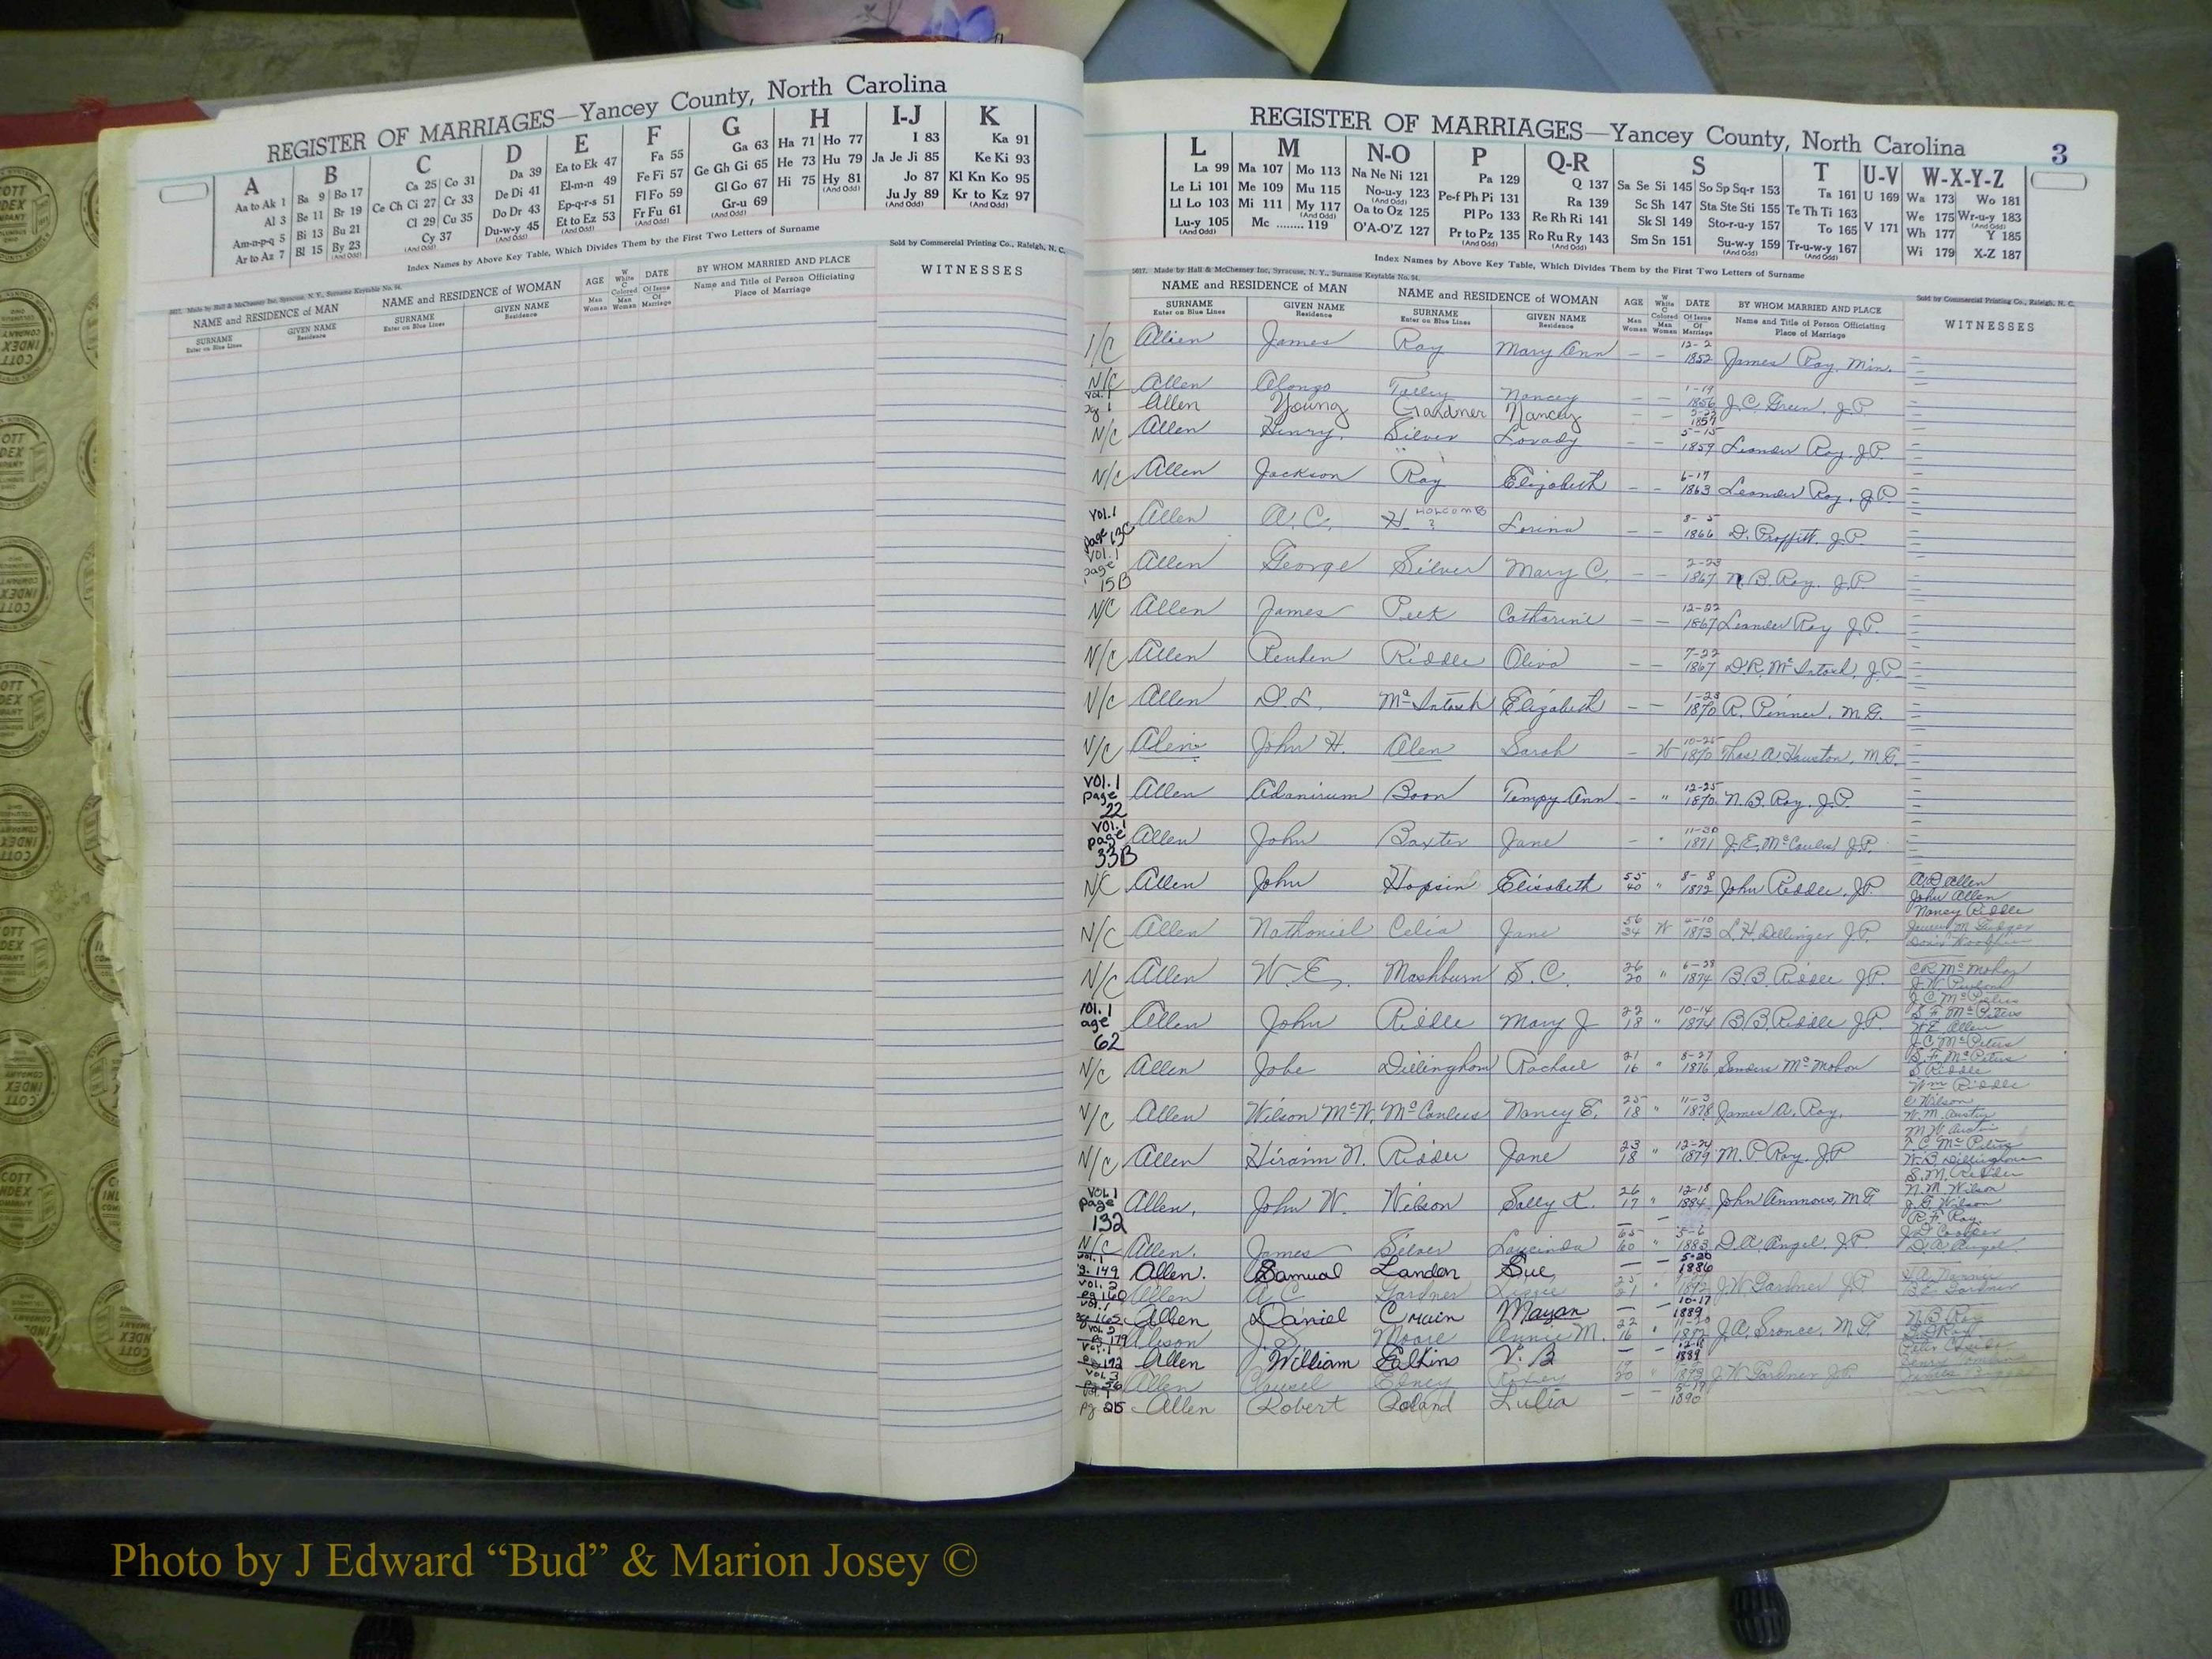 REGISTER OF MARRIAGES—Yancey County, North Carolina
A B C D E F G H I-J K
Aa to Ak 1 Ba 9 Bo 17 Ca 25 Co 31 Da 39 Ea to Ek 47 Fa 55 Ga 63 Ha 71 Ho 77 I 83 Ka 91
Al 3 Be 11 Br 19 Ce Ch Ci 27 Cr 33 De Di 41 El-m-n 49 Fe Fi 57 Ge Gh Gi 65 He 73 Hu 79 Ja Je Ji 85 Ke Ki 93
Am-n-p-q 5 Bi 13 Bu 21 Cl 29 Cu 35 Do Dr 43 Ep-q-r-s 51 Fl Fo 59 Gl Go 67 Hi 75 Hy 81 Jo 87 Kl Kn Ko 95
Ar to Az 7 Bl 15 By 23 Cy 37 Du-w-y 45 Et to Ez 53 Fr Fu 61 Gr-u 69 Ju Jy 89 Kr to Kz 97
Index Names by Above Key Table, Which Divides Them by the First Two Letters of Surname
Sold by Commercial Printing Co., Raleigh, N. C.
NAME and RESIDENCE of MAN NAME and RESIDENCE of WOMAN AGE DATE BY WHOM MARRIED AND PLACE WITNESSES
SURNAME Enter on Blue Lines GIVEN NAME Residence SURNAME Enter on Blue Lines GIVEN NAME Residence Man Woman Name and Title of Person Officiating Place of Marriage
REGISTER OF MARRIAGES—Yancey County, North Carolina 3
L M N-O P Q-R S T U-V W-X-Y-Z
La 99 Ma 107 Mo 113 Na Ne Ni 121 Pa 129 Q 137 Sa Se Si 145 So Sp Sq-r 153 Ta 161 U 169 Wa 173 Wo 181
Le Li 101 Me 109 Mu 115 No-u-y 123 Pe-f Ph Pi 131 Ra 139 Sc Sh 147 Sta Ste Sti 155 Te Th Ti 163 We 175 Wr-u-y 183
Ll Lo 103 Mi 111 My 117 Oa to Oz 125 Pl Po 133 Re Rh Ri 141 Sk Sl 149 Sto-r-u-y 157 To 165 V 171 Wh 177 Y 185
Lu-y 105 Mc 119 O'A-O'Z 127 Pr to Pz 135 Ro Ru Ry 143 Sm Sn 151 Su-w-y 159 Tr-u-w-y 167 Wi 179 X-Z 187
Index Names by Above Key Table, Which Divides Them by the First Two Letters of Surname
5617. Made by Hall & McChesney Inc. Syracuse, N. Y., Surname Keytable No. 94.
Sold by Commercial Printing Co., Raleigh, N. C.
NAME and RESIDENCE of MAN NAME and RESIDENCE of WOMAN AGE W White C Colored DATE BY WHOM MARRIED AND PLACE WITNESSES
SURNAME Enter on Blue Lines GIVEN NAME Residence SURNAME Enter on Blue Lines GIVEN NAME Residence Man Woman Man Woman Of Issue Of Marriage Name and Title of Person Officiating Place of Marriage
James Ray Mary Ann – – 12-2 1852 James Ray, Min.
N/C Allen Alonzo Nancy – – 1-19 1856 J.C. Green, J.P.
Allen Young Gardner Nancy – – 1857
N/C Allen Henry Silver – – 5-15 1859 Leander Ray, J.P.
N/C Allen Jackson Ray Elizabeth – – 6-17 1863 Leander Ray, J.P.
Vol. 1 page 13C Allen A. C. H HOLCOMB ? Lorina – – 8-5 1866 D. Proffitt, J.P.
Vol. 1 page 15B Allen George Silver Mary C. – – 2-23 1867 N. B. Ray, J.P.
N/C Allen James Peek Catharine – – 12-22 1867 Leander Ray J.P.
N/C Allen Reuben Riddle Oliva – – 7-22 1867 D.R. McIntosh, J.P.
N/C Allen D. L. McIntosh Elizabeth – – 1-23 1870 R. Pinner, M.G.
N/C John H. Alen Sarah – W 10-25 1870 Thos. A. Houston, M.G.
Vol. 1 page 22 Allen Adanirum Boon Tempy Ann – " 12-25 1870 N. B. Ray, J.P.
Vol. 1 page 33B Allen John Baxter Jane – " 11-30 1871 J.E. J.P.
N/C Allen John Hopsin Elisabeth 55 40 " 8-8 1872 John Riddle, J.P. A.D. Allen
John Allen
Nancy Riddle
N/C Allen Nathaniel Celia Jane 56 34 W 4-10 1873 L.H. Dellinger J.P.
N/C Allen W. E. Mashburn S. C. 26 20 " 6-28 1874 B.B. Riddle J.P.
Vol. 1 page 62 Allen John Riddle Mary J 22 18 " 10-14 1874 B.B. Riddle J.P. S. F. McPeters
W. E. Allen
J. C. McPeters
N/C Allen Jobe Dillingham Rachael 21 16 " 8-27 1876 Sanders McMahon S. F. McPeters
S Riddle
Wm Riddle
N/C Allen Wilson McN. Nancy E. 25 18 " 11-3 1878 James A. Ray. Wilson
W. M. Austin
M. W. Austin
N/C Allen Hiraim N. Riddle Jane 23 18 " 12-24 1879 M. P. Ray, J.P. W. B. Dillingham
Vol. 1 page 132 Allen, John W. Wilson Sally K. 26 17 " 12-18 1884 John Ammons, M.G. N. M. Wilson
J. G. Wilson
R. F. Ray
N/C Allen. James Silver Laucinda 65 60 " 5-6 1883 D.A. Angel, J.P. D. A. Angel
Vol. 1 pg. 149 Allen. Samual Landen Sue — — 5-20 1886
Vol. 2 pg 160 Allen A. C. Gardner Lizzie 25 21 " J.W. Gardner J.P.
Vol. 1 pg 165 Allen Daniel Crain Mayan — — 10-17 1889
Vol. 2 pg 179 J. S. Moore Annie M. 22 16 " J.A. Sronce, M.G. N. B. Ray
Vol. 1 pg 192 Allen William Calkins V. B — — 1889
Vol. 3 pg 56 Allen Edney 20 J.W. Gardner J.P.
Vol. 1 pg 215 Allen Robert Roland Lulia — — 5-17 1890
Photo by J Edward “Bud” & Marion Josey ©